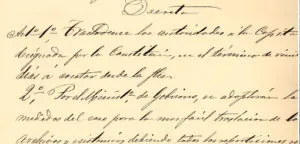 Decreta
Art. 1.º Trasládense las autoridades a la Capital
designada por la Constitución, en el término de veinte
días a contar desde la fha.
2.º Por el Minist.º de Gobierno, se adoptarán las
medidas del caso para la mas fácil traslación de los
archivos y debiendo todas las reparticiones